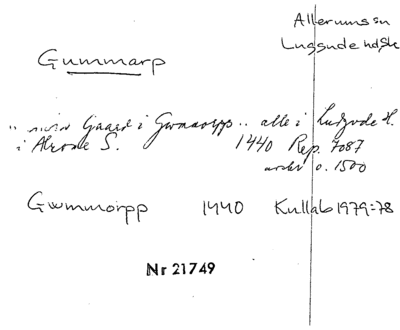 Allerums sn
Luggude hd Sk
Gummarp
" min Gaard i Gwmmorpp .. alle i Ludgude H.
i Alrome S. 1440 Rep. 7087
under o. 1500
Gwmmorpp 1440 Kullab 1979:78
Nr 21749